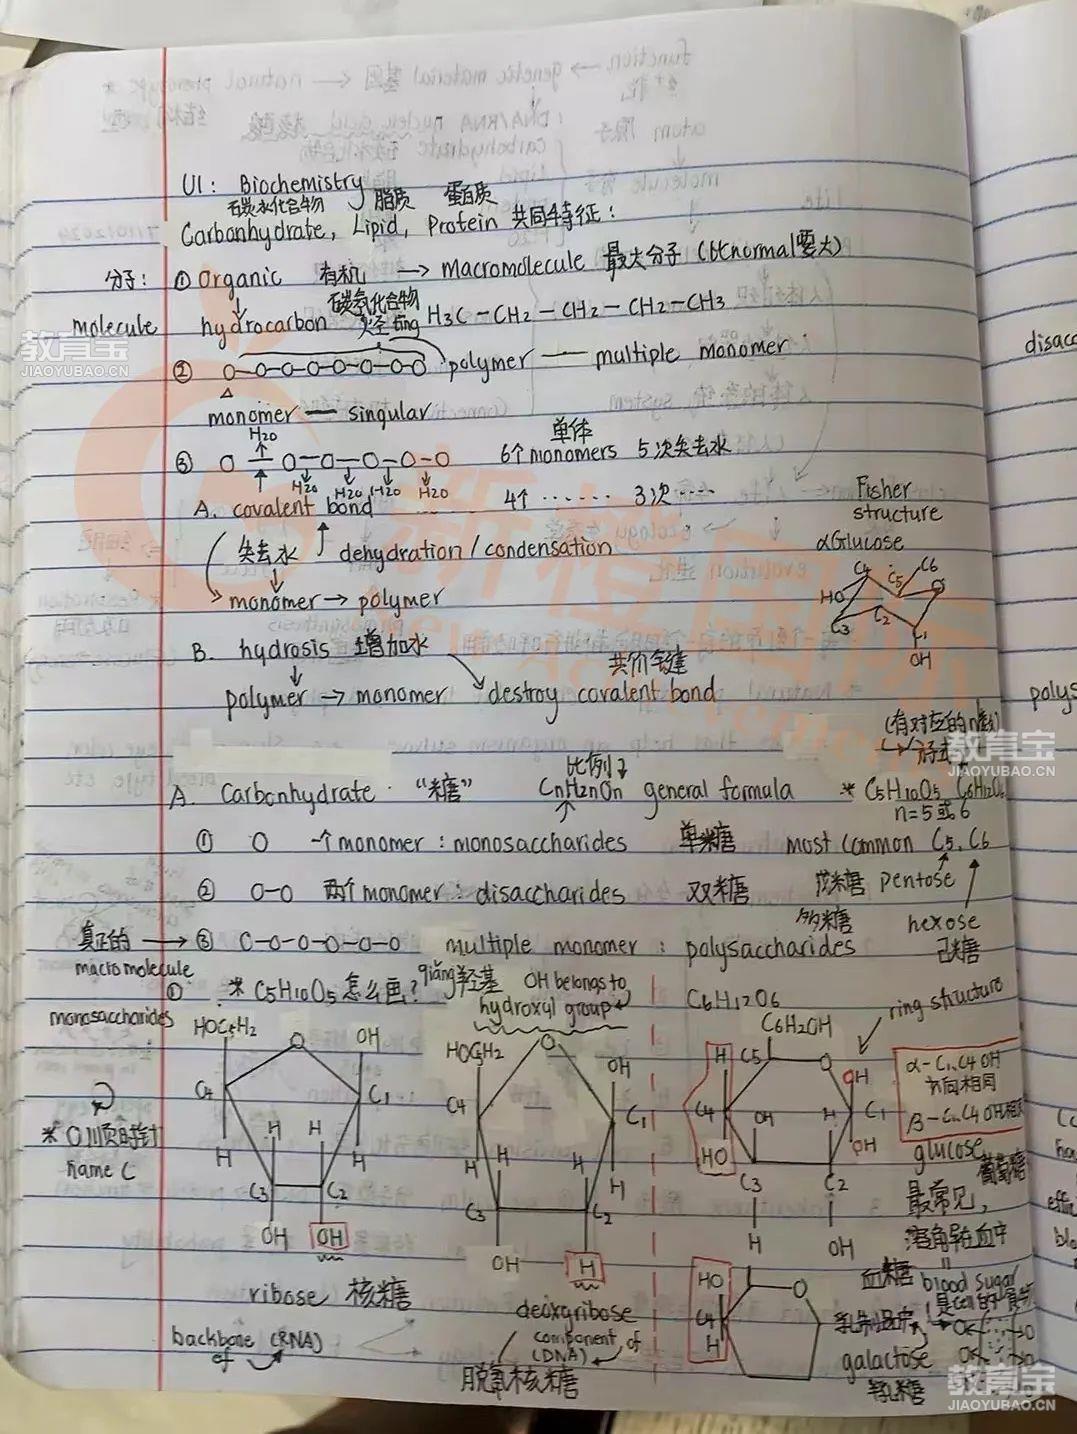 U1: Biochemistry
碳水化合物 脂质 蛋白质
Carbonhydrate, Lipid, Protein 共同特征:
分子: ① Organic 有机 → Macromolecule 最大分子 (比normal要大)
碳氢化合物
molecule hydrocarbon 烃 ting H3C-CH2-CH2-CH2-CH3
② O-O-O-O-O-O-O polymer — multiple monomer
monomer — singular
H2O
单体
③ O - O-O-O-O-O 6个monomers 5次失去水
H2O H2O H2O H2O
4个 ...... 3次 ....
A. covalent bond
Fisher structure
失去水 dehydration/condensation
αGlucose
C4 C5 C6 O
HO C3 C2 C1
OH
monomer → polymer
B. hydrosis 增加水
共价键
polymer → monomer destroy covalent bond
(有对应的n数)
比例
A. Carbonhydrate "糖" CnH2nOn general formula * C5H10O5 C6H12O6
n=5或6
① O 一个monomer: monosaccharides 单糖 most common C5, C6
② O-O 两个monomer: disaccharides 双糖 戊糖 pentose
多糖 hexose
真正的 → ③ O-O-O-O-O-O multiple monomer: polysaccharides 己糖
macromolecule
① * C5H10O5怎么画? qiǎng羟基 OH belongs to hydroxyl group C6H12O6 ring structure
monosaccharides
HOC5H2 O OH
C4 C1
H H H H
C3 C2
OH OH
HOC5H2 O OH
C4 C1
H H H H
C3 C2
OH H
C6H2OH
H C5 O OH
C4 OH H C1
HO OH
C3 C2
H OH
α-C1, C4 OH
方向相同
β-C1, C4 OH相反
* O顺时针
name C
glucose 葡萄糖
最常见,
溶解在血中
血糖 blood sugar
是cell的食物
HO O
C4
H
乳制品中
galactose
半乳糖
ribose 核糖
backbone of (RNA)
deoxyribose
component of (DNA)
脱氧核糖
disacc
polys
教育宝
JIAOYUBAO.CN
教育宝
JIAOYUBAO.CN
教育宝
JIAOYUBAO.CN